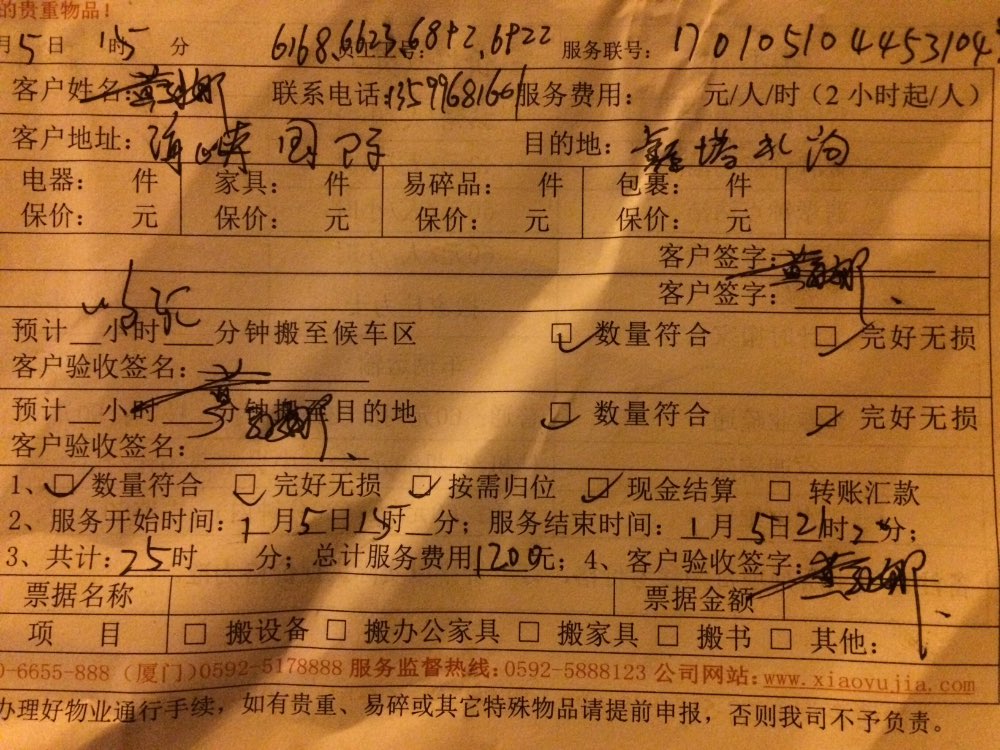 的贵重物品！
月5日 15分 6168.6623.6892.6922 服务联号：170105104453104
客户姓名： 联系电话：13599681661 服务费用： 元/人/时（2小时起/人）
客户地址：海峡国际 目的地：
电器： 件 家具： 件 易碎品： 件 包裹： 件
保价： 元 保价： 元 保价： 元 保价： 元
客户签字：
客户签字：
预计 小时 分钟搬至候车区 数量符合 完好无损
客户验收签名：
预计 小时 分钟搬至目的地 数量符合 完好无损
客户验收签名：
1、 数量符合 完好无损 按需归位 现金结算 转账汇款
2、服务开始时间：1月5日15时 分；服务结束时间：1月5日21时2 分；
3、共计：25时 分；总计服务费用1200元；4、客户验收签字：
票据名称 票据金额
项 目 搬设备 搬办公家具 搬家具 搬书 其他：
0-6655-888 (厦门)0592-5178888 服务监督热线：0592-5888123 公司网站：www.xiaoyujia.com
办理好物业通行手续，如有贵重、易碎或其它特殊物品请提前申报，否则我司不予负责。